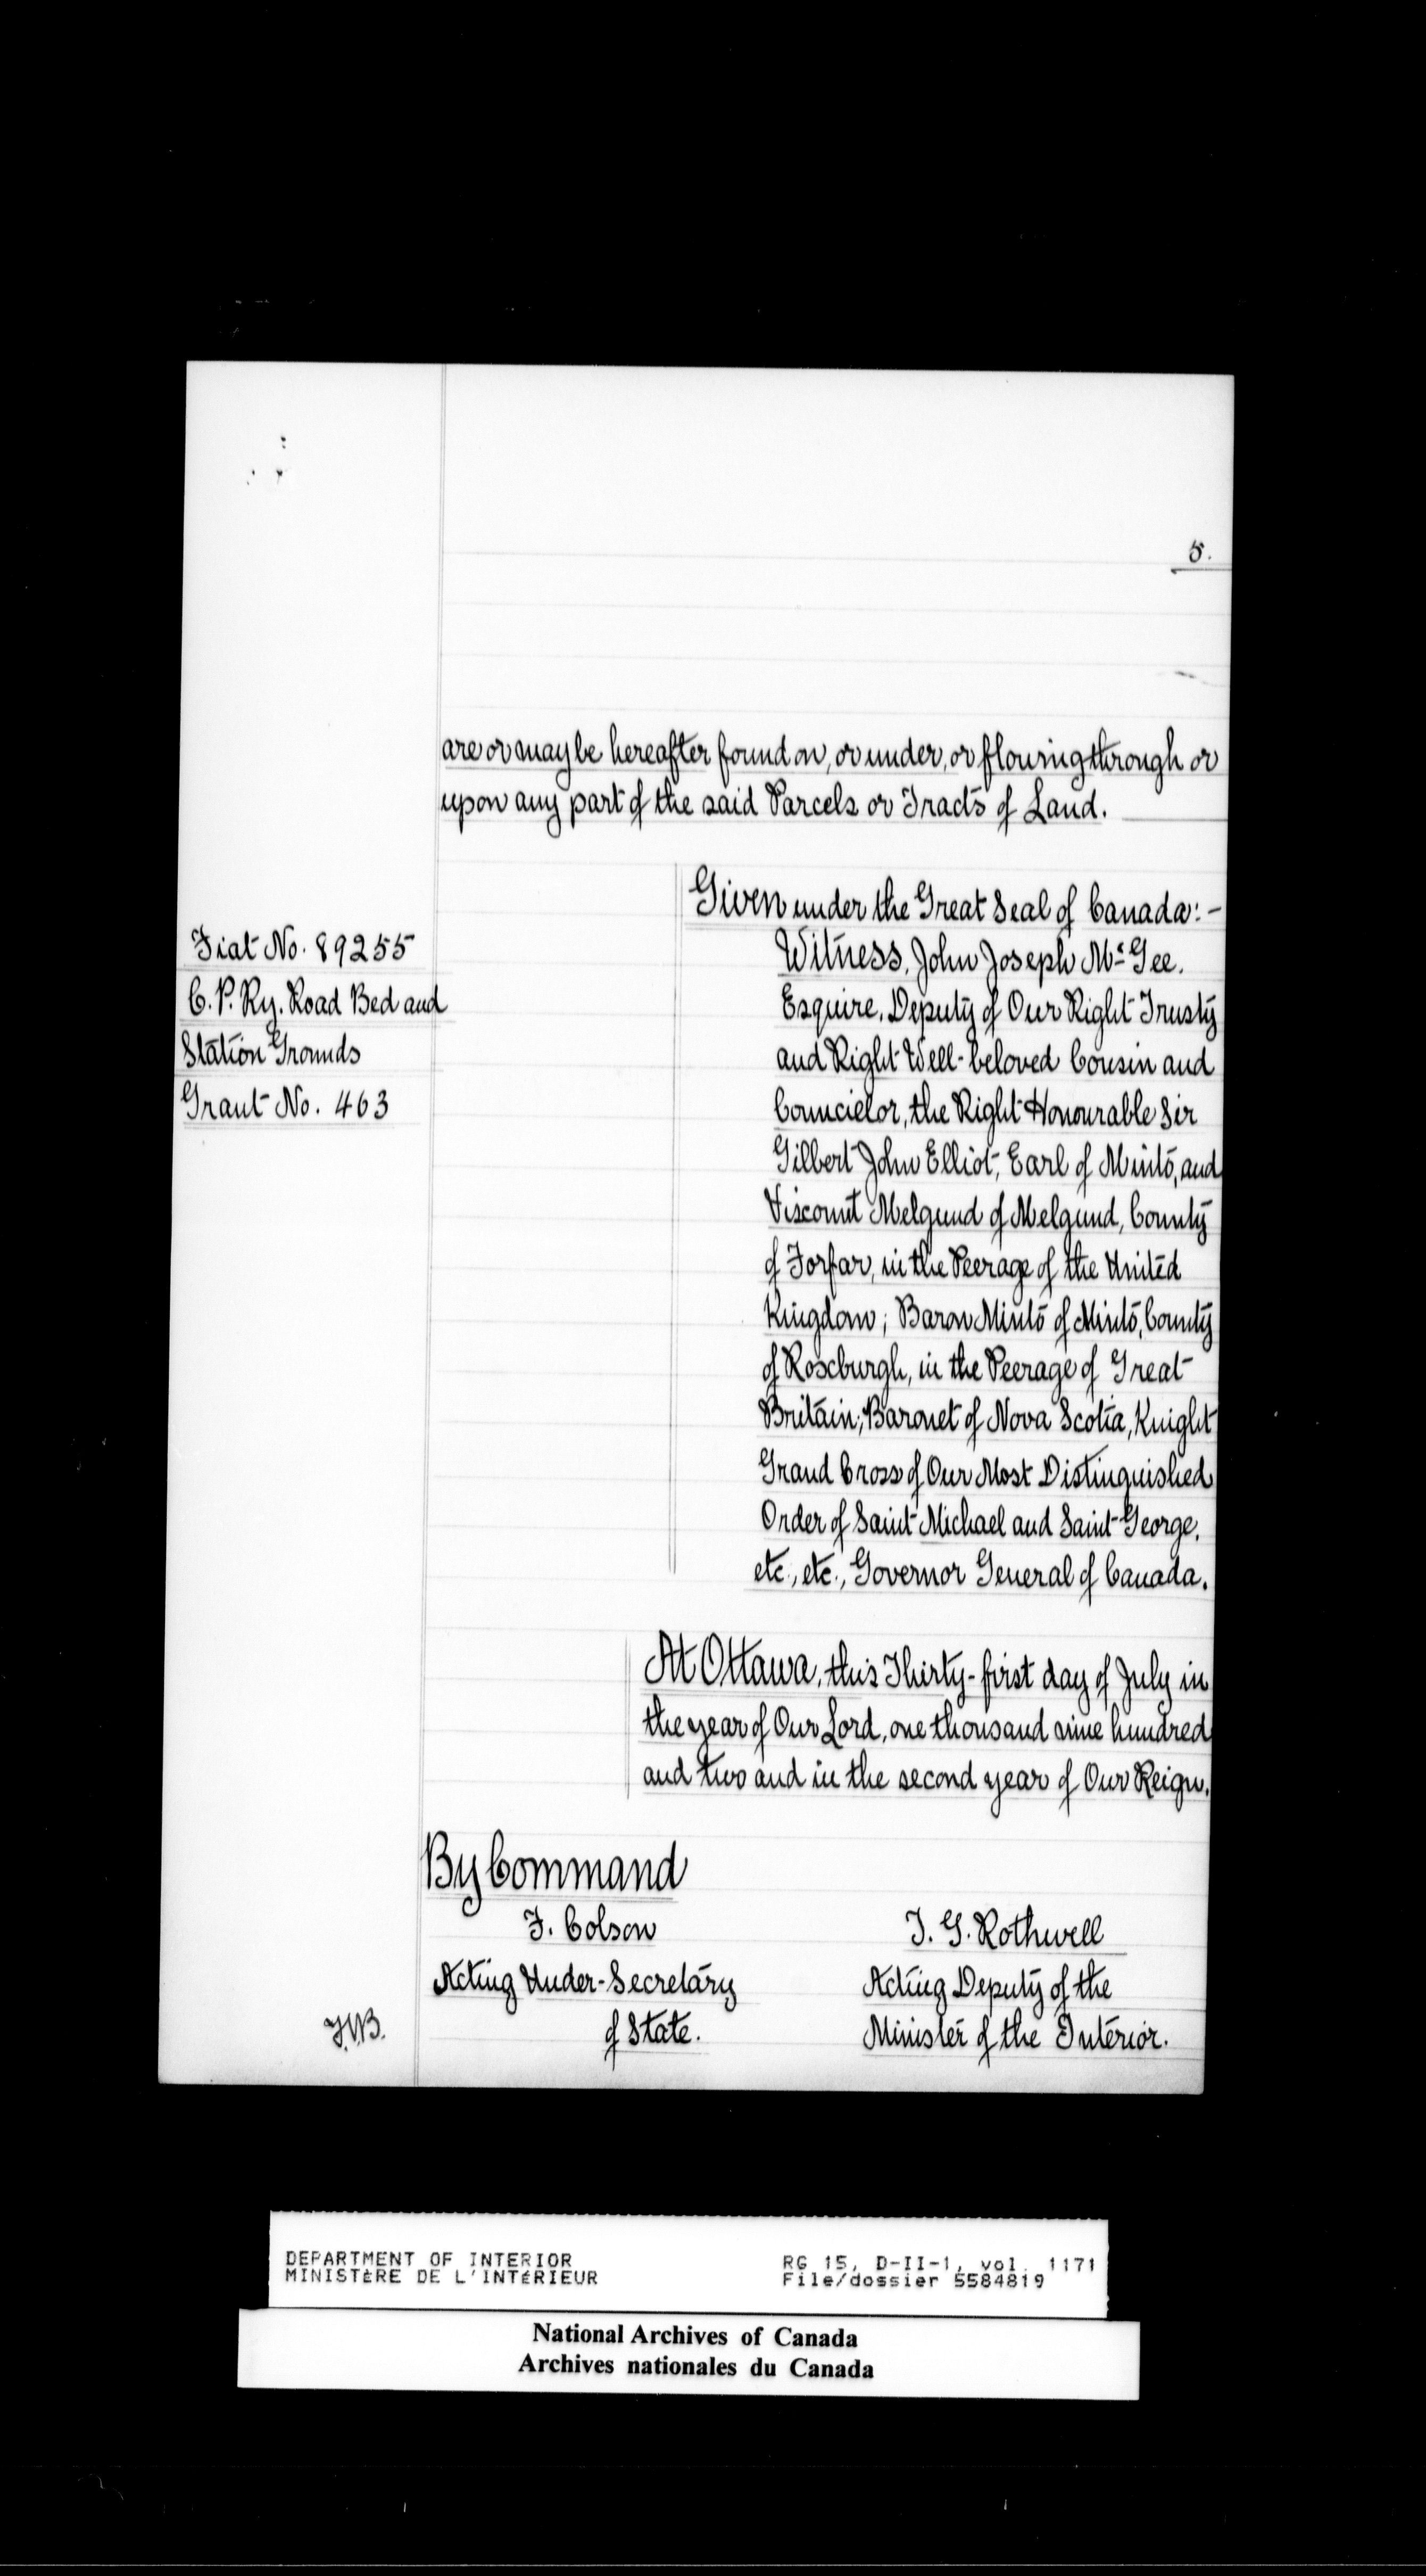 5.
are or may be hereafter found on, or under, or flowing through or
upon any part of the said Parcels or Tracts of Land.
Given under the Great Seal of Canada:-
Fiat No. 89255
C. P. Ry. Road Bed and
Station Grounds
Grant No. 463
Witness, John Joseph McGee.
Esquire, Deputy of Our Right Trusty
and Right Well-beloved Cousin and
Councielor, the Right Honourable Sir
Gilbert John Elliot, Earl of Minto, and
Viscount Melgund of Melgund, County
of Forfar, in the Peerage of the United
Kingdom; Baron Minto of Minto, County
of Roxburgh, in the Peerage of Great
Britain; Baronet of Nova Scotia, Knight
Grand Cross of Our Most Distinguished
Order of Saint Michael and Saint George,
etc., etc., Governor General of Canada.
At Ottawa, this Thirty-first day of July in
the year of Our Lord, one thousand nine hundred
and two and in the second year of Our Reign.
By Command
F. Colson
Acting Under-Secretary
of State.
T. G. Rothwell
Acting Deputy of the
Minister of the Interior.
DEPARTMENT OF INTERIOR
MINISTÈRE DE L'INTÉRIEUR
RG 15, D-II-1, vol. 1171
File/dossier 5584819
National Archives of Canada
Archives nationales du Canada